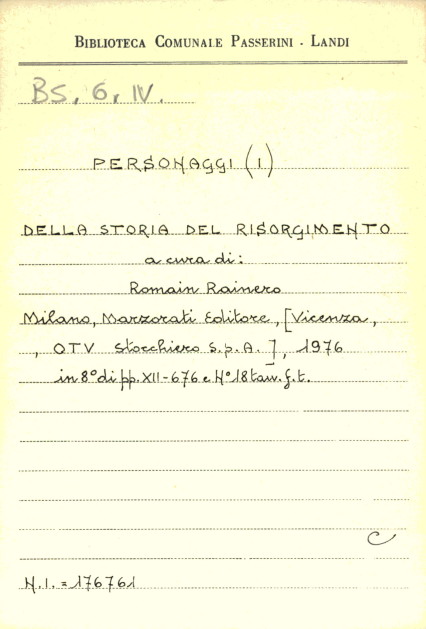 BIBLIOTECA COMUNALE PASSERINI - LANDI
BS. 6. IV.
PERSONAGGI (I)
DELLA STORIA DEL RISORGIMENTO
a cura di:
Romain Rainero
Milano, Marzorati Editore, [Vicenza,
, OTV Stocchiero S.p.A.], 1976
in 8° di pp. XII-676 e N° 18 tav. f.t.
C
N.I. = 176761